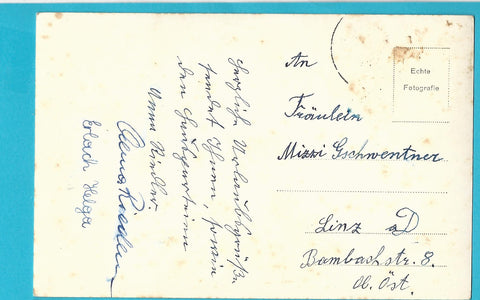 Herzliche Urlaubsgrüße
sendet Ihnen, sowie
den Hausparteien
Anna Riedler.
Anna Riedler
Erlach Helga
Echte
Fotografie
An
Fräulein
Mizzi Gschwentner
Linz a/D
Bambachstr. 8.
Ob. Öst.